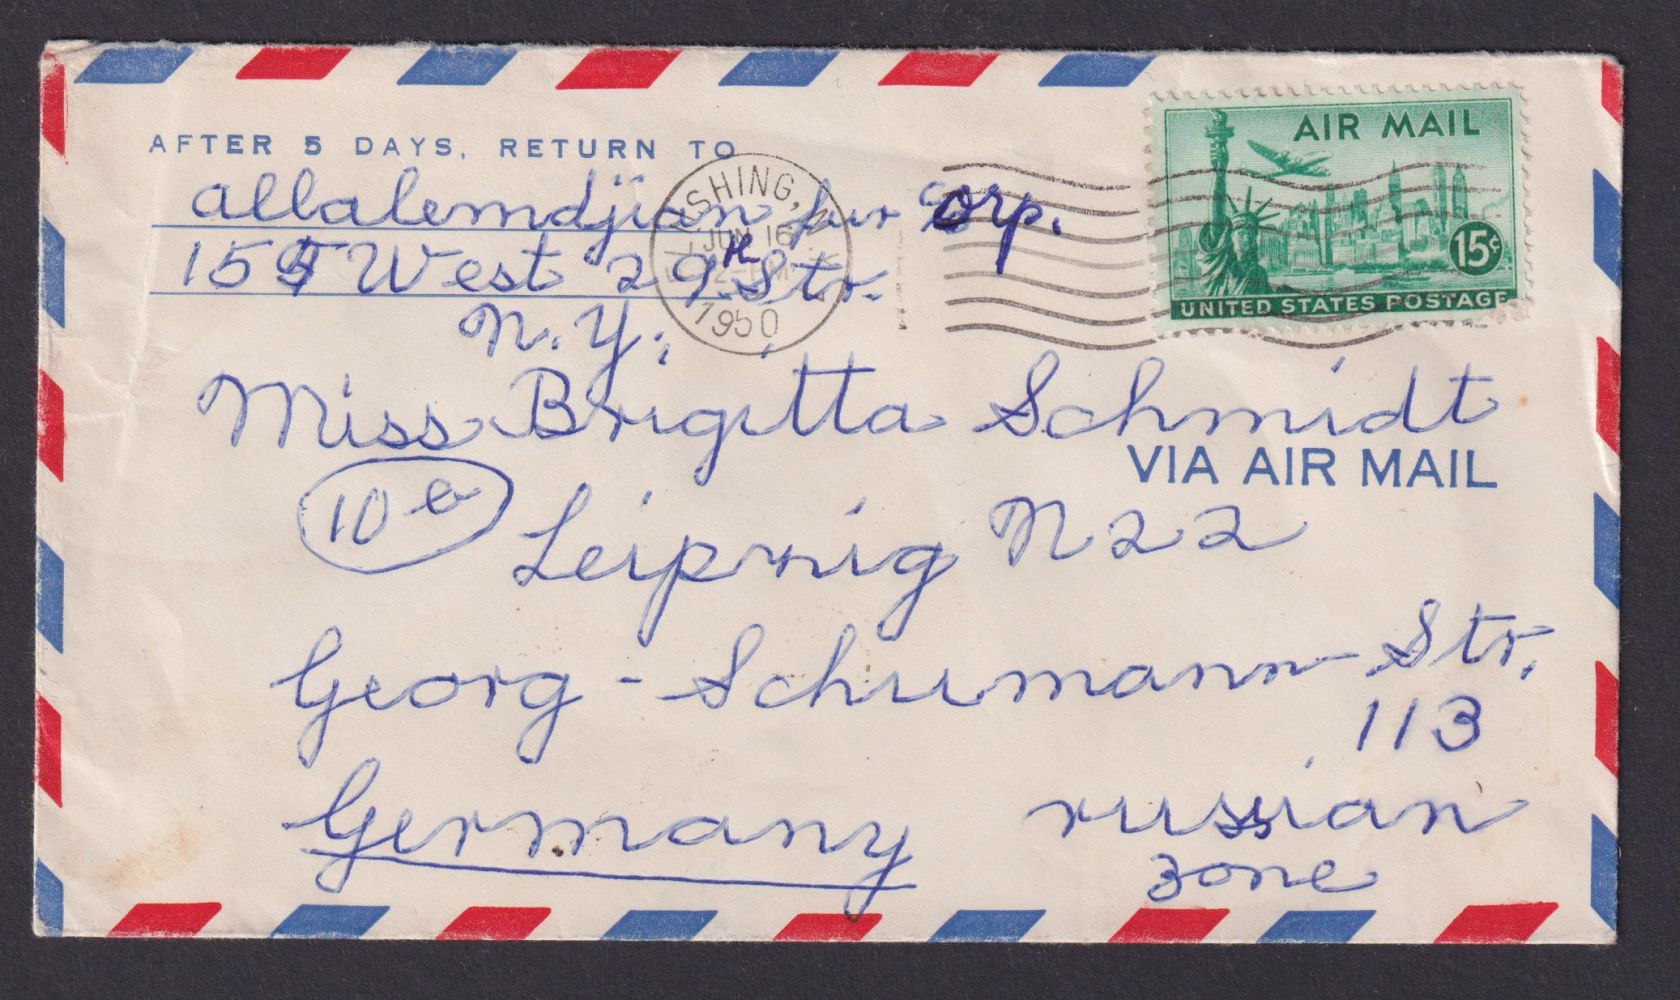 AFTER 5 DAYS, RETURN TO
allalemdjian fur Corp.
155 West 29th Str.
N.Y.
SHING, N
JUN 16
1950
AIR MAIL
15¢
UNITED STATES POSTAGE
Miss Brigitta Schmidt
VIA AIR MAIL
10
Leipzig N 22
Georg-Schumann-Str.
113
Germany russian
zone